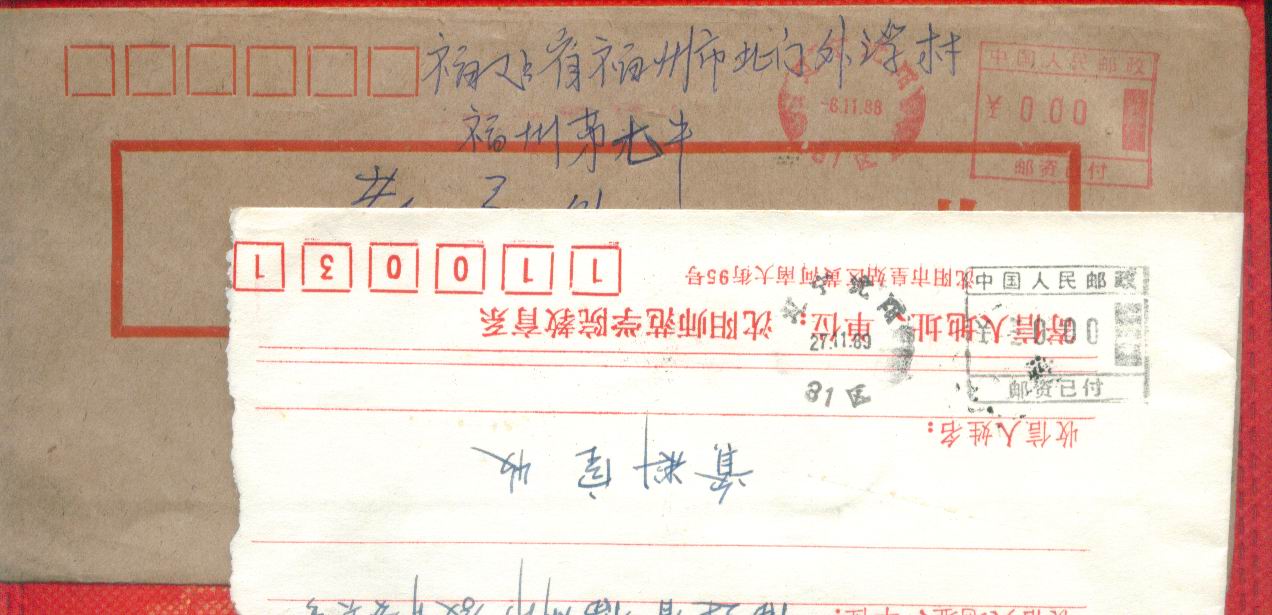 福建省福州市北门外
福州第
-8.11.88
81
中国人民邮政
¥ 0.00
邮资已付
110031
沈阳市皇姑区黄河南大街95号
寄信人地址、单位：沈阳师范学院教育系
辽宁沈阳
27.11.89
81
中国人民邮政
¥ 0.00
邮资已付
收信人姓名：
资料室 收